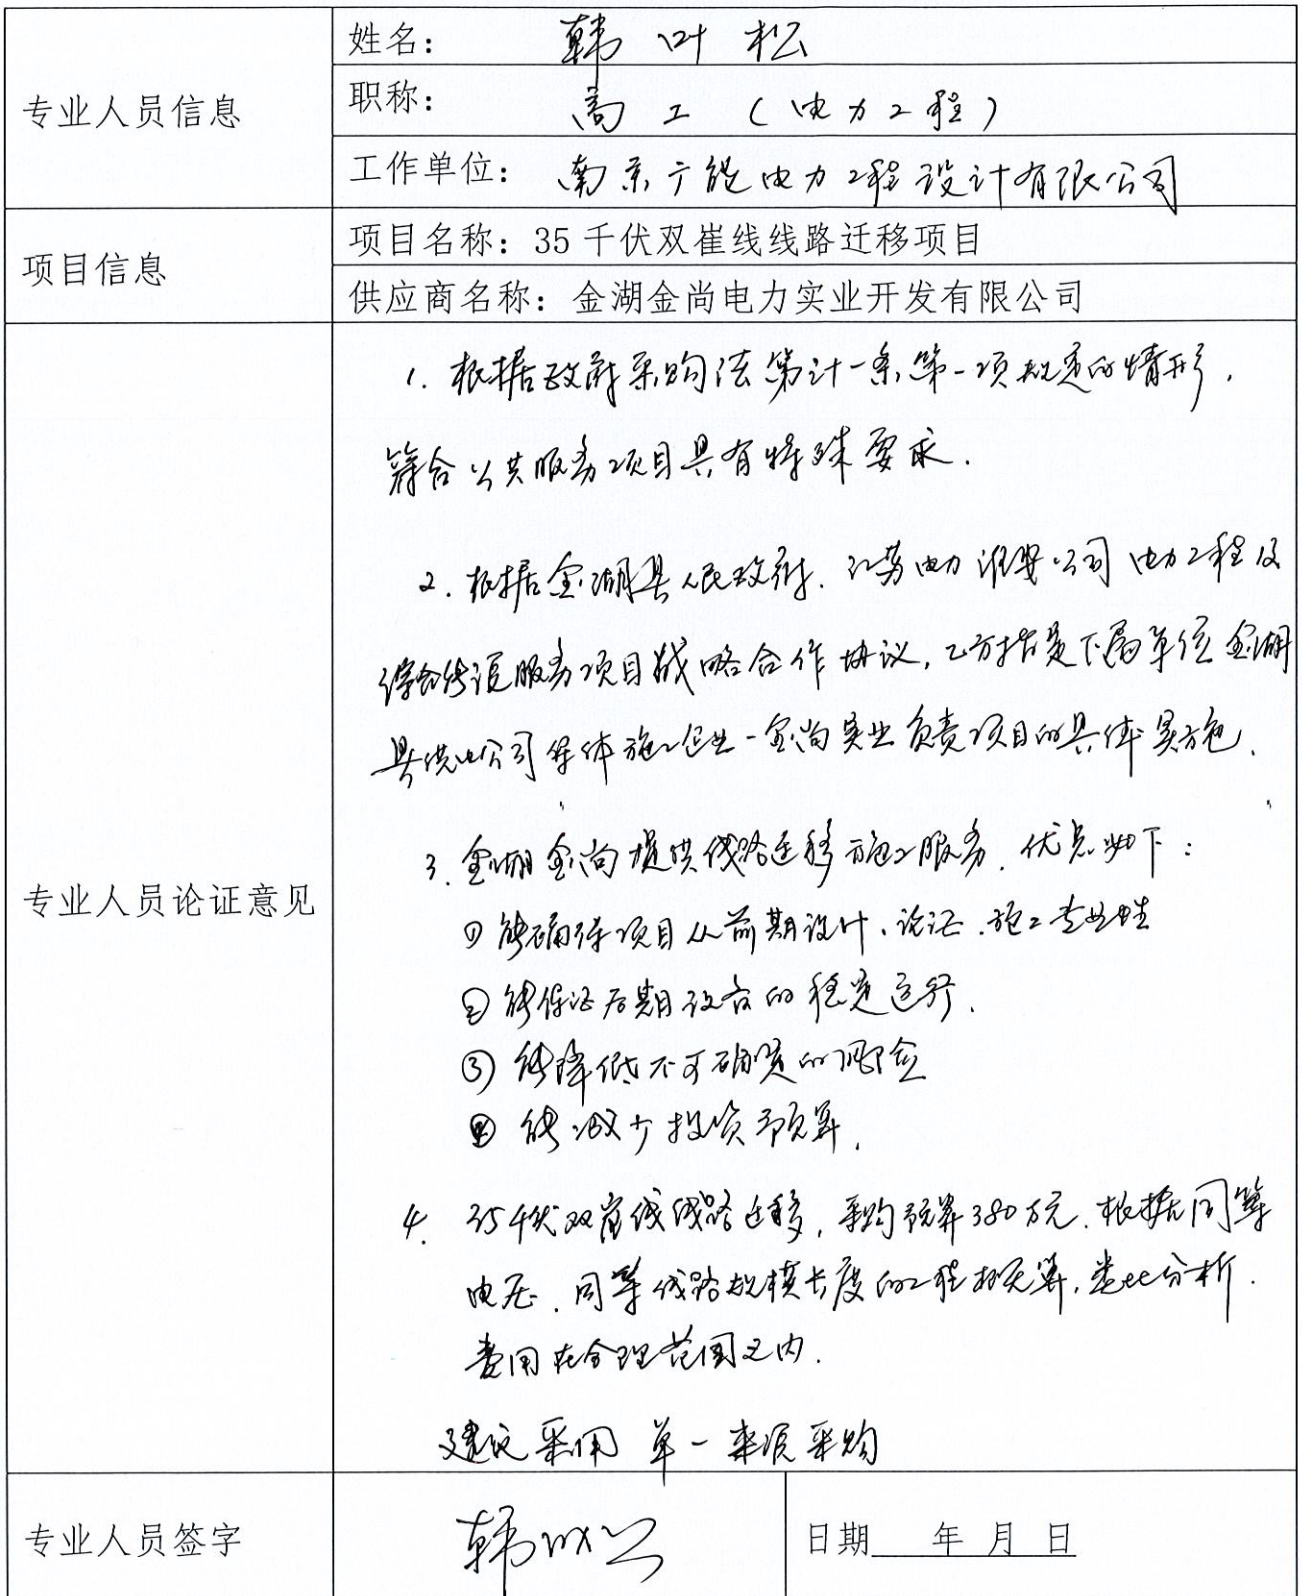 专业人员信息
姓名: 韩叶松
职称: 高工（电力工程）
工作单位: 南京广能电力工程设计有限公司
项目信息
项目名称: 35千伏双崔线线路迁移项目
供应商名称: 金湖金尚电力实业开发有限公司
专业人员论证意见
1. 根据政府采购法第卅一条第一项规定的情形,
符合公共服务项目具有特殊要求.
2. 根据金湖县人民政府、江苏电力淮安公司电力工程及
综合能源服务项目战略合作协议, 乙方指定下属单位金湖
县供电公司集体施工企业-金尚实业负责项目的具体实施.
3. 金湖金尚提供线路迁移施工服务, 优点如下:
① 能确保项目从前期设计、论证、施工专业性
② 能保证后期设备的稳定运行.
③ 能降低不可确定的风险
④ 能减少投资预算.
4. 35千伏双崔线线路迁移, 采购预算380万元. 根据同等
电压、同等线路规模长度的工程概算, 类比分析.
费用在合理范围之内.
建议采用单一来源采购
专业人员签字
日期 年 月 日